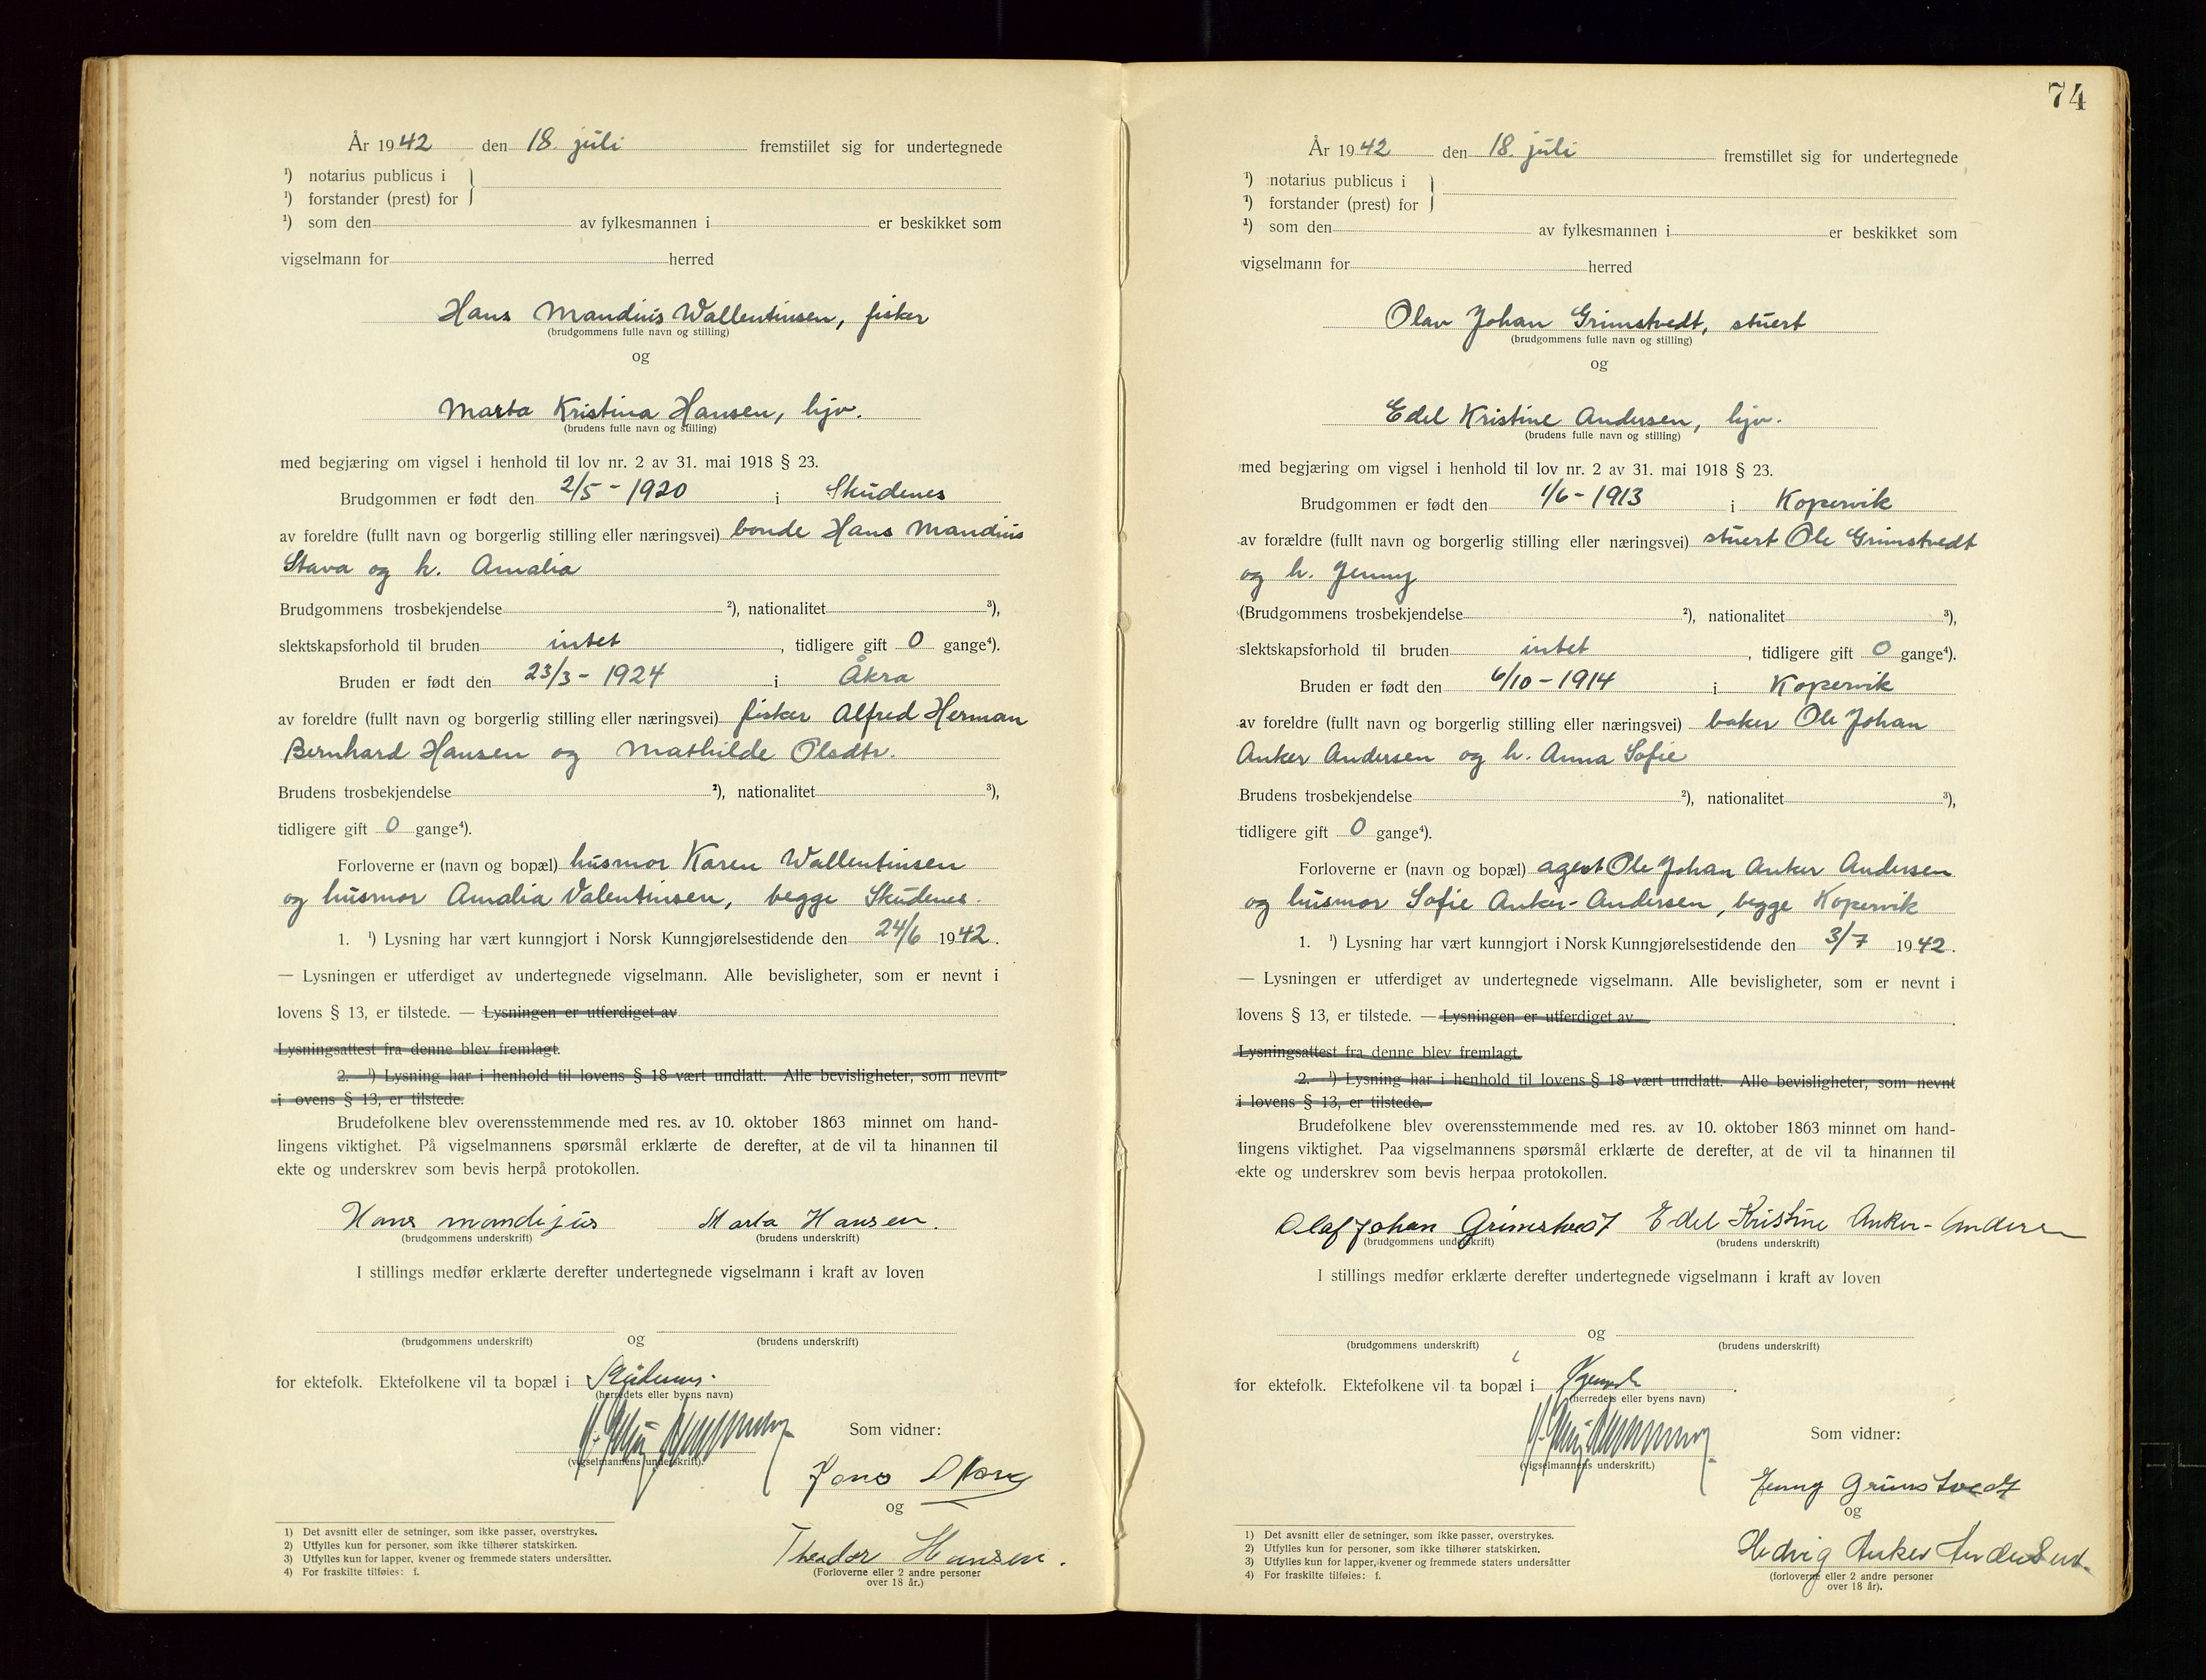 År 1942 den 18. juli fremstillet sig for undertegnede
¹) notarius publicus i
¹) forstander (prest) for
¹) som den av fylkesmannen i er beskikket som
vigselmann for herred
Hans Mandius Wallentinsen, fisker
(brudgommens fulle navn og stilling)
og
Marta Kristina Hansen, hjv.
(brudens fulle navn og stilling)
med begjæring om vigsel i henhold til lov nr. 2 av 31. mai 1918 § 23.
Brudgommen er født den 2/5 - 1920 i Skudenes
av foreldre (fullt navn og borgerlig stilling eller næringsvei) bonde Hans Mandius
Stava og h. Amalia
Brudgommens trosbekjendelse ²), nationalitet ³),
slektskapsforhold til bruden intet, tidligere gift 0 gange⁴).
Bruden er født den 23/3 - 1924 i Åkra
av foreldre (fullt navn og borgerlig stilling eller næringsvei) fisker Alfred Herman
Bernhard Hansen og Mathilde Olsdtr.
Brudens trosbekjendelse ²), nationalitet ³),
tidligere gift 0 gange⁴).
Forloverne er (navn og bopæl) husmor Karen Wallentinsen
og husmor Amalia Valentinsen, begge Skudenes.
1. ¹) Lysning har vært kunngjort i Norsk Kunngjørelsestidende den 24/6 1942.
— Lysningen er utferdiget av undertegnede vigselmann. Alle bevisligheter, som er nevnt i
lovens § 13, er tilstede. — Lysningen er utferdiget av
Lysningsattest fra denne blev fremlagt.
2. ¹) Lysning har i henhold til lovens § 18 vært undlatt. Alle bevisligheter, som nevnt
i ovens § 13, er tilstede.
Brudefolkene blev overensstemmende med res. av 10. oktober 1863 minnet om hand-
lingens viktighet. På vigselmannens spørsmål erklærte de derefter, at de vil ta hinannen til
ekte og underskrev som bevis herpå protokollen.
Hans mandijus Marta Hansen.
(brudgommens underskrift) (brudens underskrift)
I stillings medfør erklærte derefter undertegnede vigselmann i kraft av loven
og
(brudgommens underskrift) (brudens underskrift)
for ektefolk. Ektefolkene vil ta bopæl i Skudenes.
(herredets eller byens navn)
Som vidner:
(vigselmannens underskrift).
og
Theodor Hansen.
(Forloverne eller 2 andre personer
over 18 år.)
1) Det avsnitt eller de setninger, som ikke passer, overstrykes.
2) Utfylles kun for personer, som ikke tilhører statskirken.
3) Utfylles kun for lapper, kvener og fremmede staters undersåtter.
4) For fraskilte tilføies: f.
74
År 1942 den 18. juli fremstillet sig for undertegnede
¹) notarius publicus i
¹) forstander (prest) for
¹) som den av fylkesmannen i er beskikket som
vigselmann for herred
Olav Johan Grimstvedt, stuert
(brudgommens fulle navn og stilling)
og
Edel Kristine Andersen, hjv.
(brudens fulle navn og stilling)
med begjæring om vigsel i henhold til lov nr. 2 av 31. mai 1918 § 23.
Brudgommen er født den 1/6 - 1913 i Kopervik
av forældre (fullt navn og borgerlig stilling eller næringsvei) stuert Ole Grimstvedt
og h. Jenny
(Brudgommens trosbekjendelse ²), nationalitet ³),
slektskapsforhold til bruden intet, tidligere gift 0 gange⁴).
Bruden er født den 6/10 - 1914 i Kopervik
av foreldre (fullt navn og borgerlig stilling eller næringsvei) baker Ole Johan
Anker Andersen og h. Anna Sofie
Brudens trosbekjendelse ²), nationalitet ³),
tidligere gift 0 gange⁴).
Forloverne er (navn og bopæl) agent Ole Johan Anker Andersen
og husmor Sofie Anker-Andersen, begge Kopervik
1. ¹) Lysning har vært kunngjort i Norsk Kunngjørelsestidende den 3/7 1942.
— Lysningen er utferdiget av undertegnede vigselmann. Alle bevisligheter, som er nevnt i
lovens § 13, er tilstede. — Lysningen er utferdiget av
Lysningsattest fra denne blev fremlagt.
2. ¹) Lysning har i henhold til lovens § 18 vært undlatt. Alle bevisligheter, som nevnt
i lovens § 13, er tilstede.
Brudefolkene blev overensstemmende med res. av 10. oktober 1863 minnet om hand-
lingens viktighet. Paa vigselmannens spørsmål erklærte de derefter, at de vil ta hinannen til
ekte og underskrev som bevis herpaa protokollen.
Olaf Johan Grimstvedt Edel Kristine Anker-Andersen
(brudgommens underskrift) (brudens underskrift)
I stillings medfør erklærte derefter undertegnede vigselmann i kraft av loven
og
(brudgommens underskrift) (brudens underskrift)
for ektefolk. Ektefolkene vil ta bopæl i
(herredets eller byens navn)
Som vidner:
(vigselmannens underskrift.)
Jenny Grimstvedt
og
Hedvig Anker Andersen.
(forloverne eller 2 andre personer
over 18 år).
1) Det avsnitt eller de setninger, som ikke passer, overstrykes.
2) Utfylles kun for personer, som ikke tilhører statskirken.
3) Utfylles kun for lapper, kvener og fremmede staters undersåtter
4) For fraskilte tilføies: f.